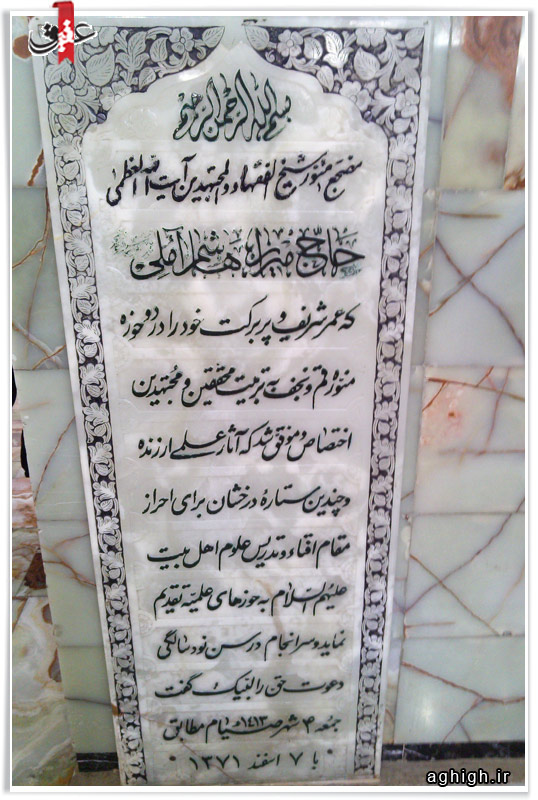 عقیق
بسم الله الرحمن الرحیم
مضجع منور شیخ الفقهاء و المجتهدین آیت الله العظمی
حاج میرزا هاشم آملی
که عمر شریف و پر برکت خود را در دو حوزه
منوره قم و نجف به تربیت محققین و مجتهدین
اختصاص و موفق شد که آثار علمی ارزنده
و چندین ستاره درخشان برای احراز
مقام افتاء و تدریس علوم اهل بیت
علیهم السلام به حوزه‌های علمیه تقدیم
نماید و سرانجام در سن نود سالگی
دعوت حق را لبیک گفت
جمعه ۴ شهر صیام ۱۴۱۳ مطابق
با ۷ اسفند ۱۳۷۱
aghigh.ir